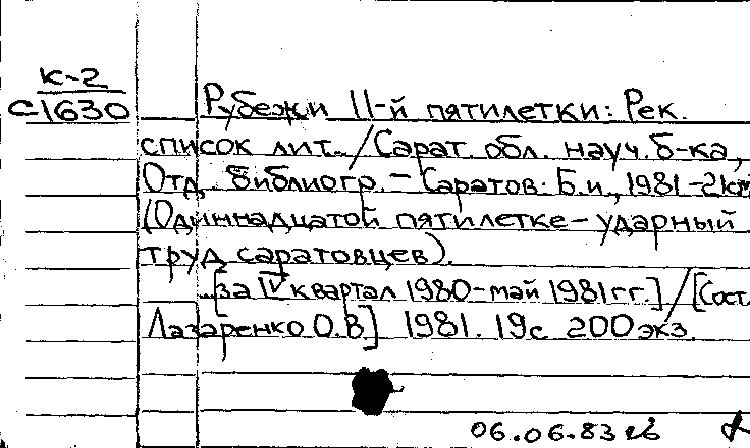 К-2
С1630
Рубежи 11-й пятилетки: Рек.
список лит. / Сарат. обл. науч. б-ка,
Отд. библиогр. - Саратов: Б.и., 1981 - 2кн
(Одиннадцатой пятилетке - ударный
труд саратовцев).
[за IV квартал 1980 - май 1981 гг.] / [Сост.
Лазаренко О.В.] 1981. 19с 200 экз.
06.06.83